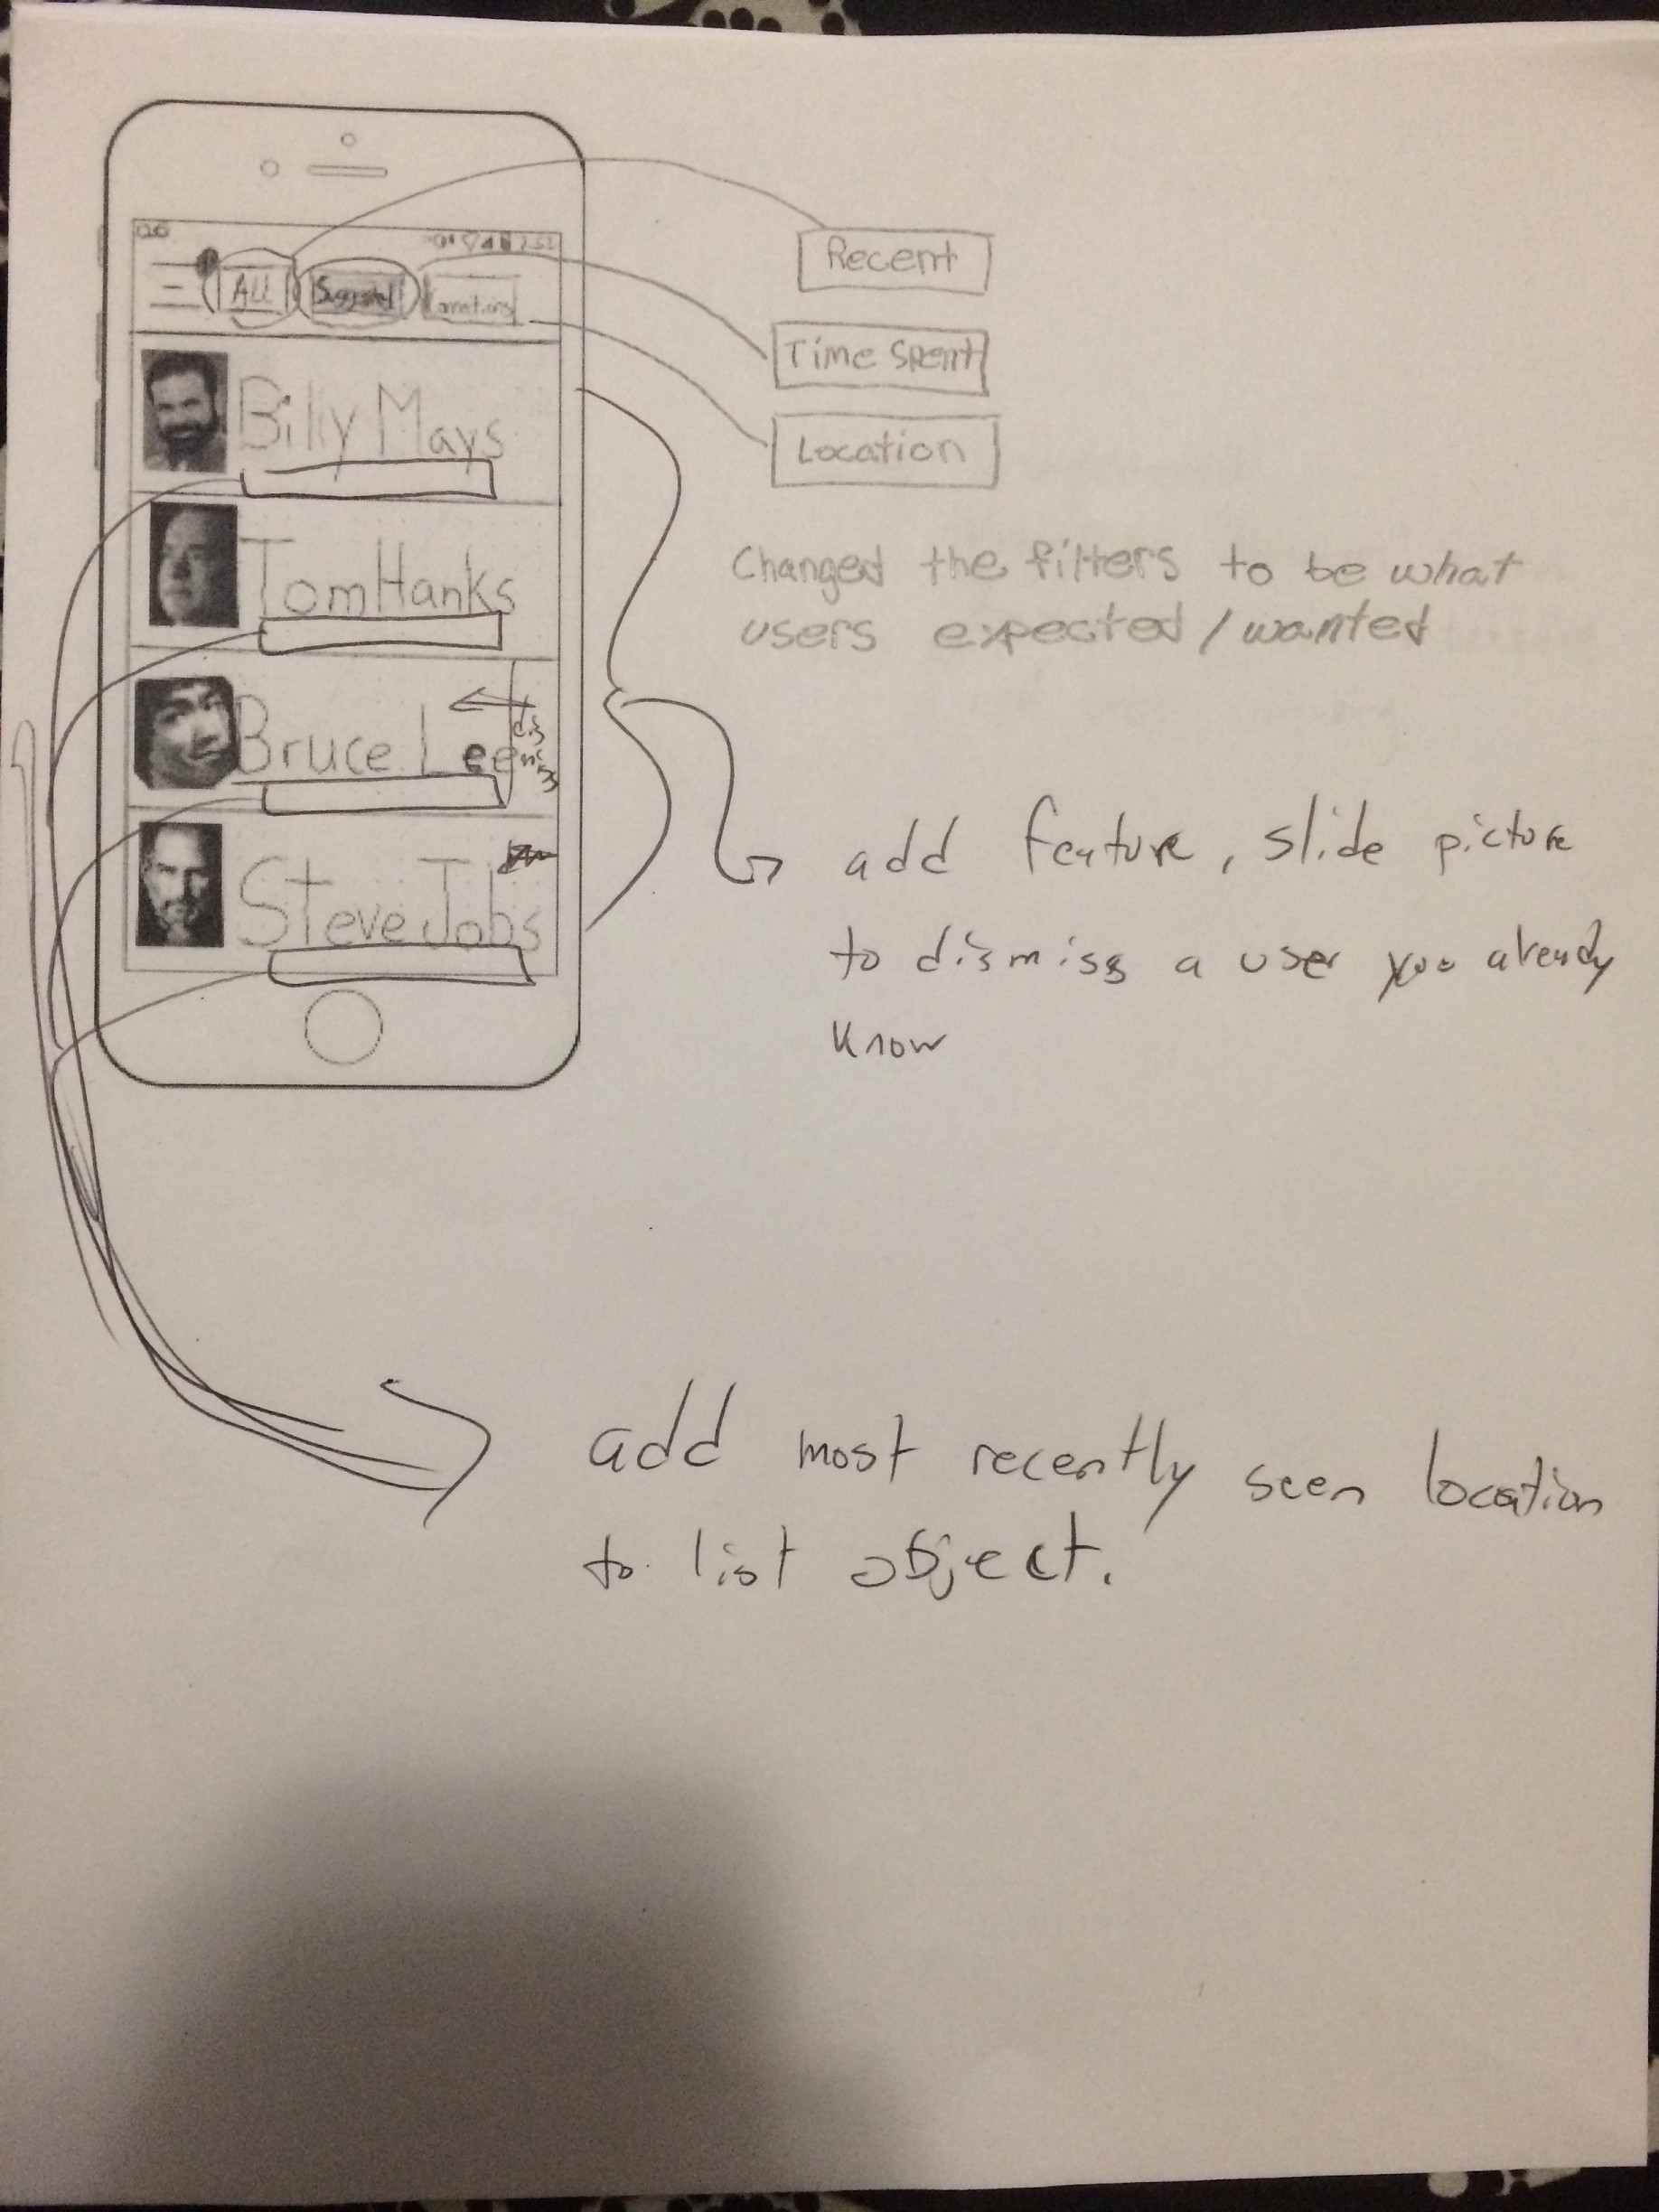 ALL
Suggested
Recent
Time Spent
Location
Billy Mays
Tom Hanks
Bruce Lee
dis
miss
Steve Jobs
Changed the filters to be what
users expected / wanted
add feature, slide picture
to dismiss a user you already
know
add most recently seen location
to list object.